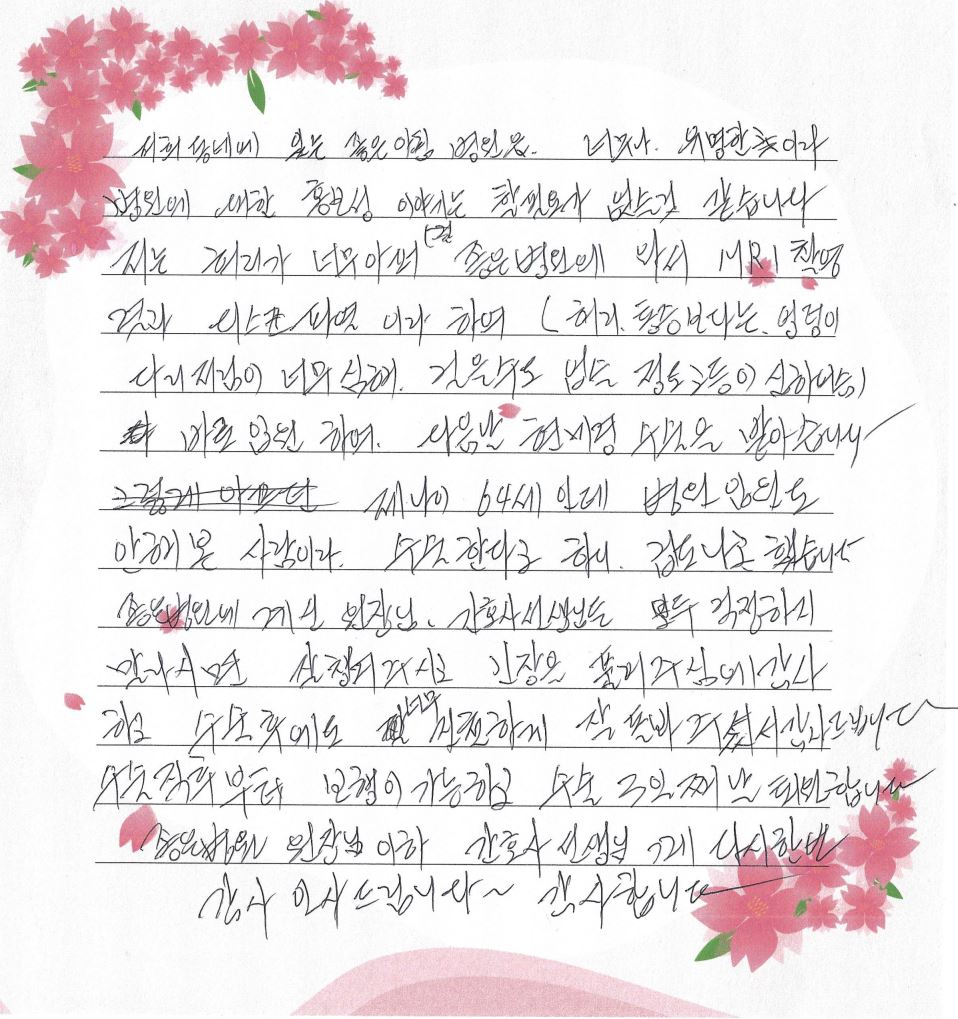 저희 동네에 있는 좋은아침 병원은. 너무나. 유명한곳이라
병원에 대한 홍보성 이야기는 할필요가 없는것 같습니다
저는 허리가 너무아퍼 좋은병원에 와서 MRI 촬영
결과 디스크파열 이라 하여 (허리.통증보다는.엉덩이
다리저림이 너무심해. 걸을수도 없는 정도 통증이 심하다는)
바로 입원 하여. 다음날 현미경 수술을 받아습니다
그렇게 아프던 제나이 64세 인데 병원 입원도
안해본 사람이라. 수술한다고 하니. 겁도나곤 했습니다
좋은병원에 계신 원장님. 간호사선생님들 모두 걱정하시
말라시면 안정되라시고 긴장을 풀러주심에감사
하고 수술후에도 너무 친절하게 잘 돌봐주셔서감사드립니다
수술직후부터 보행이가능하고 수술 3일째날 퇴원합니다
좋은병원 원장님 이하 간호사선생님 께 다시한번
감사 인사드립니다~ 감사합니다